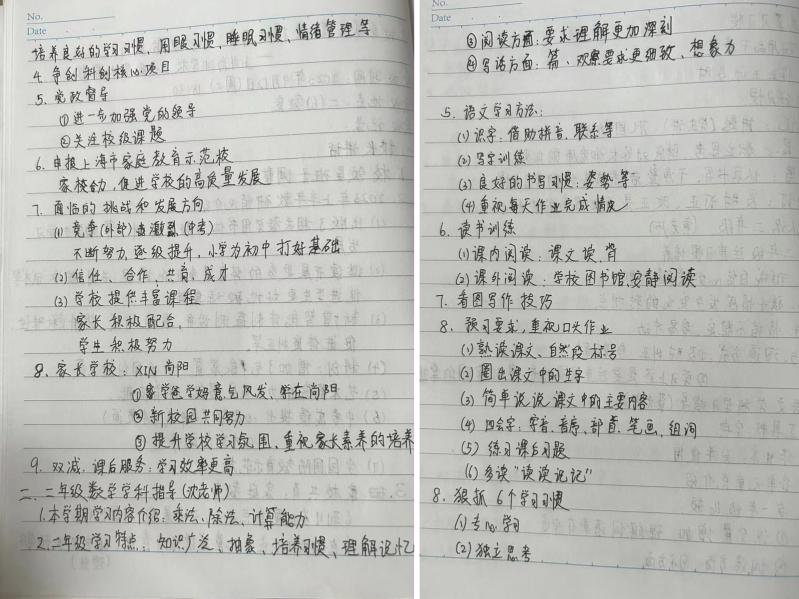 No.
Date
培养良好的学习习惯、用眼习惯、睡眠习惯、情绪管理等
4. 争创科创核心项目
5. 党政督导
①进一步加强党的领导
②关注校级课题
6. 申报上海市家庭教育示范校
家校合力,促进学校的高质量发展
7. 面临的挑战和发展方向
(1) 竞争(外部)激烈(中考)
不断努力,逐级提升,小学为初中打好基础
(2) 信任、合作、共育、成才
(3) 学校提供丰富课程
家长积极配合,
学生积极努力
8. 家长学校:XIN尚阳
意气风发、学在尚阳
② 新校园共同努力
③ 提升学校学习氛围、重视家长素养的培养
9. 双减、课后服务:学习效率更高
二、二年级数学学科指导(沈老师)
1.本学期学习内容介绍:乘法、除法、计算能力
2.二年级学习特点:知识广泛、抽象、培养习惯、理解记忆
No.
Date
③阅读方面:要求理解更加深刻
④写话方面:篇、观察要求更细致、想象力
5. 语文学习方法:
(1) 识字:借助拼音、联系等
(2) 写字训练
(3) 良好的书写习惯:姿势等
(4) 重视每天作业完成情况
6. 读书训练
(1) 课内阅读:课文读、背
(2) 课外阅读:学校图书馆,安静阅读
7. 看图写作技巧
8. 预习要求,重视口头作业
(1) 熟读课文、自然段标号
(2) 圈出课文中的生字
(3) 简单说说课文中的主要内容
(4) 四会字:字音、音序、部首、笔画、组词
(5) 练习课后习题
(6) 多读“读读记记”
8. 狠抓6个学习习惯
(1) 专心学习
(2) 独立思考